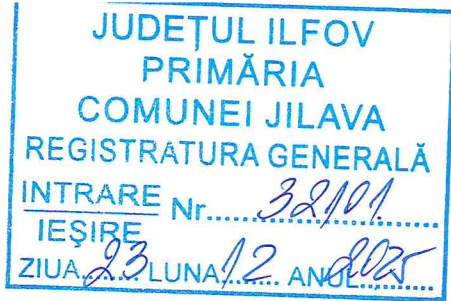 JUDEȚUL ILFOV
PRIMĂRIA
COMUNEI JILAVA
REGISTRATURA GENERALĂ
INTRARE Nr. 32101
IEȘIRE
ZIUA 23 LUNA 12 ANUL 2025